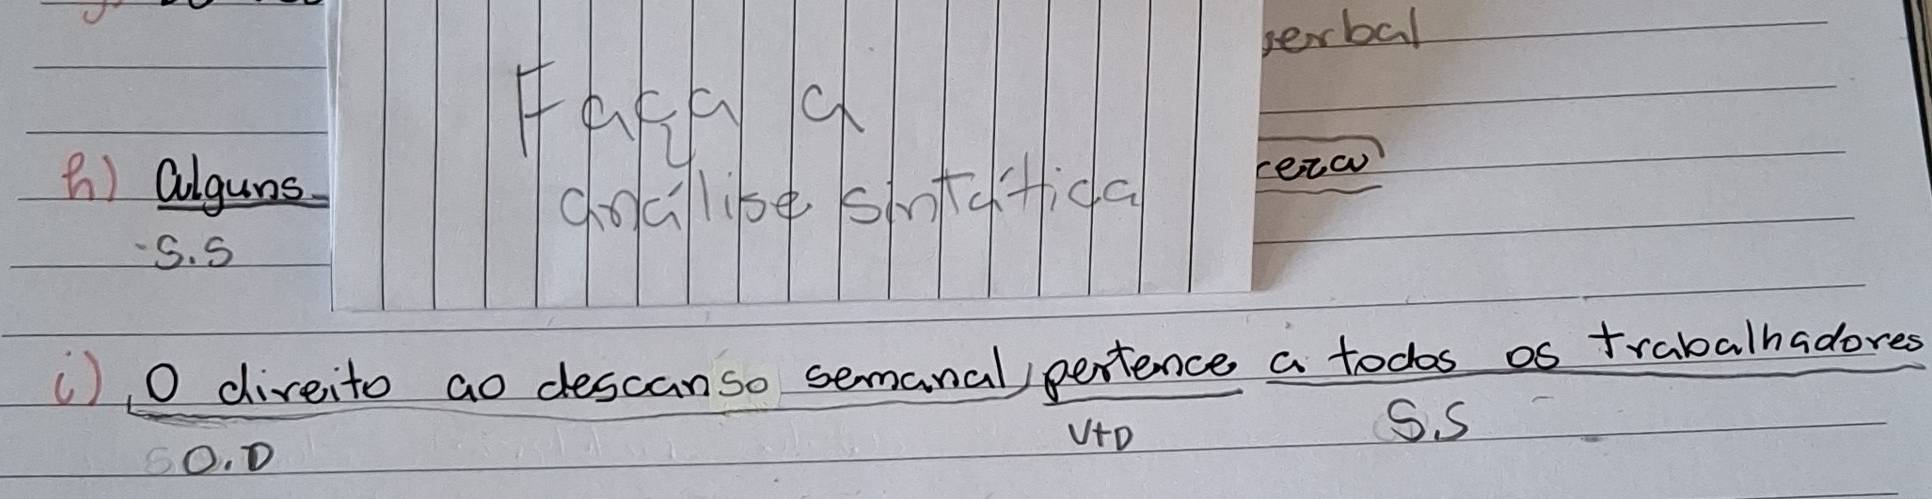 verbal
Faça a
análise sintática
h) Alguns
S.S
i) O direito ao descanso semanal pertence a todos os trabalhadores
O.D VTD S.S